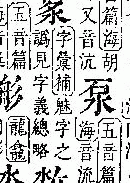 篇海胡
又音沆
五音篇
海音流
字彙補魅字之
譌見字義總略
五音篇
龍龕